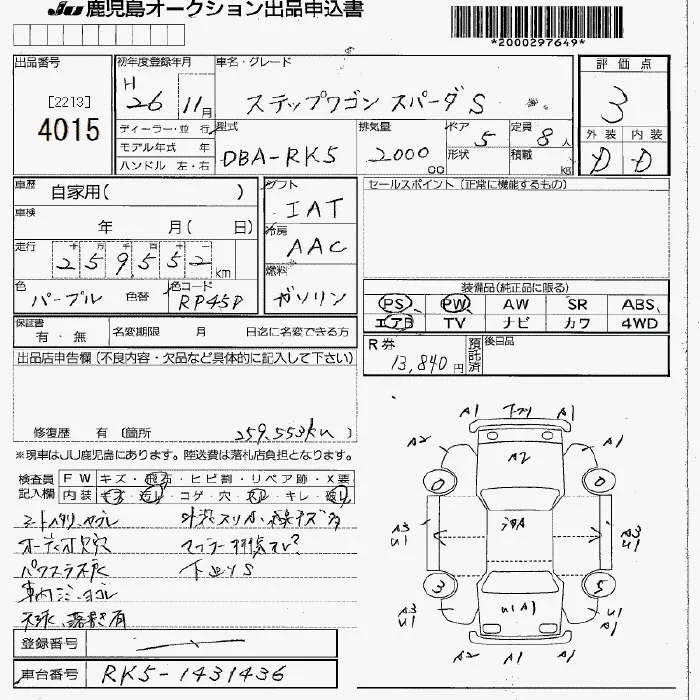 JU 鹿児島オークション出品申込書
*2000297649*
出品番号
[2213]
4015
初年度登録年月
H
26 11月
車名・グレード
ステップワゴン スパーダ S
評価点
3
外装 内装
D D
ディーラー・並行
モデル年式 年
ハンドル 左・右
型式
DBA-RK5
排気量
2000
cc
ドア 5
形状
定員 8人
積載 kg
車歴 自家用( )
車検
年 月( 日)
走行 十 万 千 百 十 一
259552 km
色
パープル
色替
色コード
RP45P
シフト
IAT
冷房
AAC
燃料
ガソリン
セールスポイント(正常に機能するもの)
装備品(純正品に限る)
PS PW AW SR ABS
エアB TV ナビ カワ 4WD
保証書
有・無
名変期限 月 日迄に名変できる方
R券
13,840円
預託済
後日品
出品店申告欄(不良内容・欠品など具体的に記入して下さい)
修復歴 有 〔箇所
259,553km
※現車はJU鹿児島にあります。陸送費は落札店負担となります。
検査員
記入欄
FW キズ・飛石・ヒビ割・リペア跡・X要
内装 キズ・コゲ・穴・スレ・キレ
シートヘタリ、ヤブレ
オーディオ欠穴
車内ゴミ、ヨゴレ
下廻りS
A1 A1
A2 A1
A2
0 0
A3
U1
A3
U1
3 5
U1 A1
A3
U1
A2 A1 A1
登録番号
車台番号 RK5-1431436